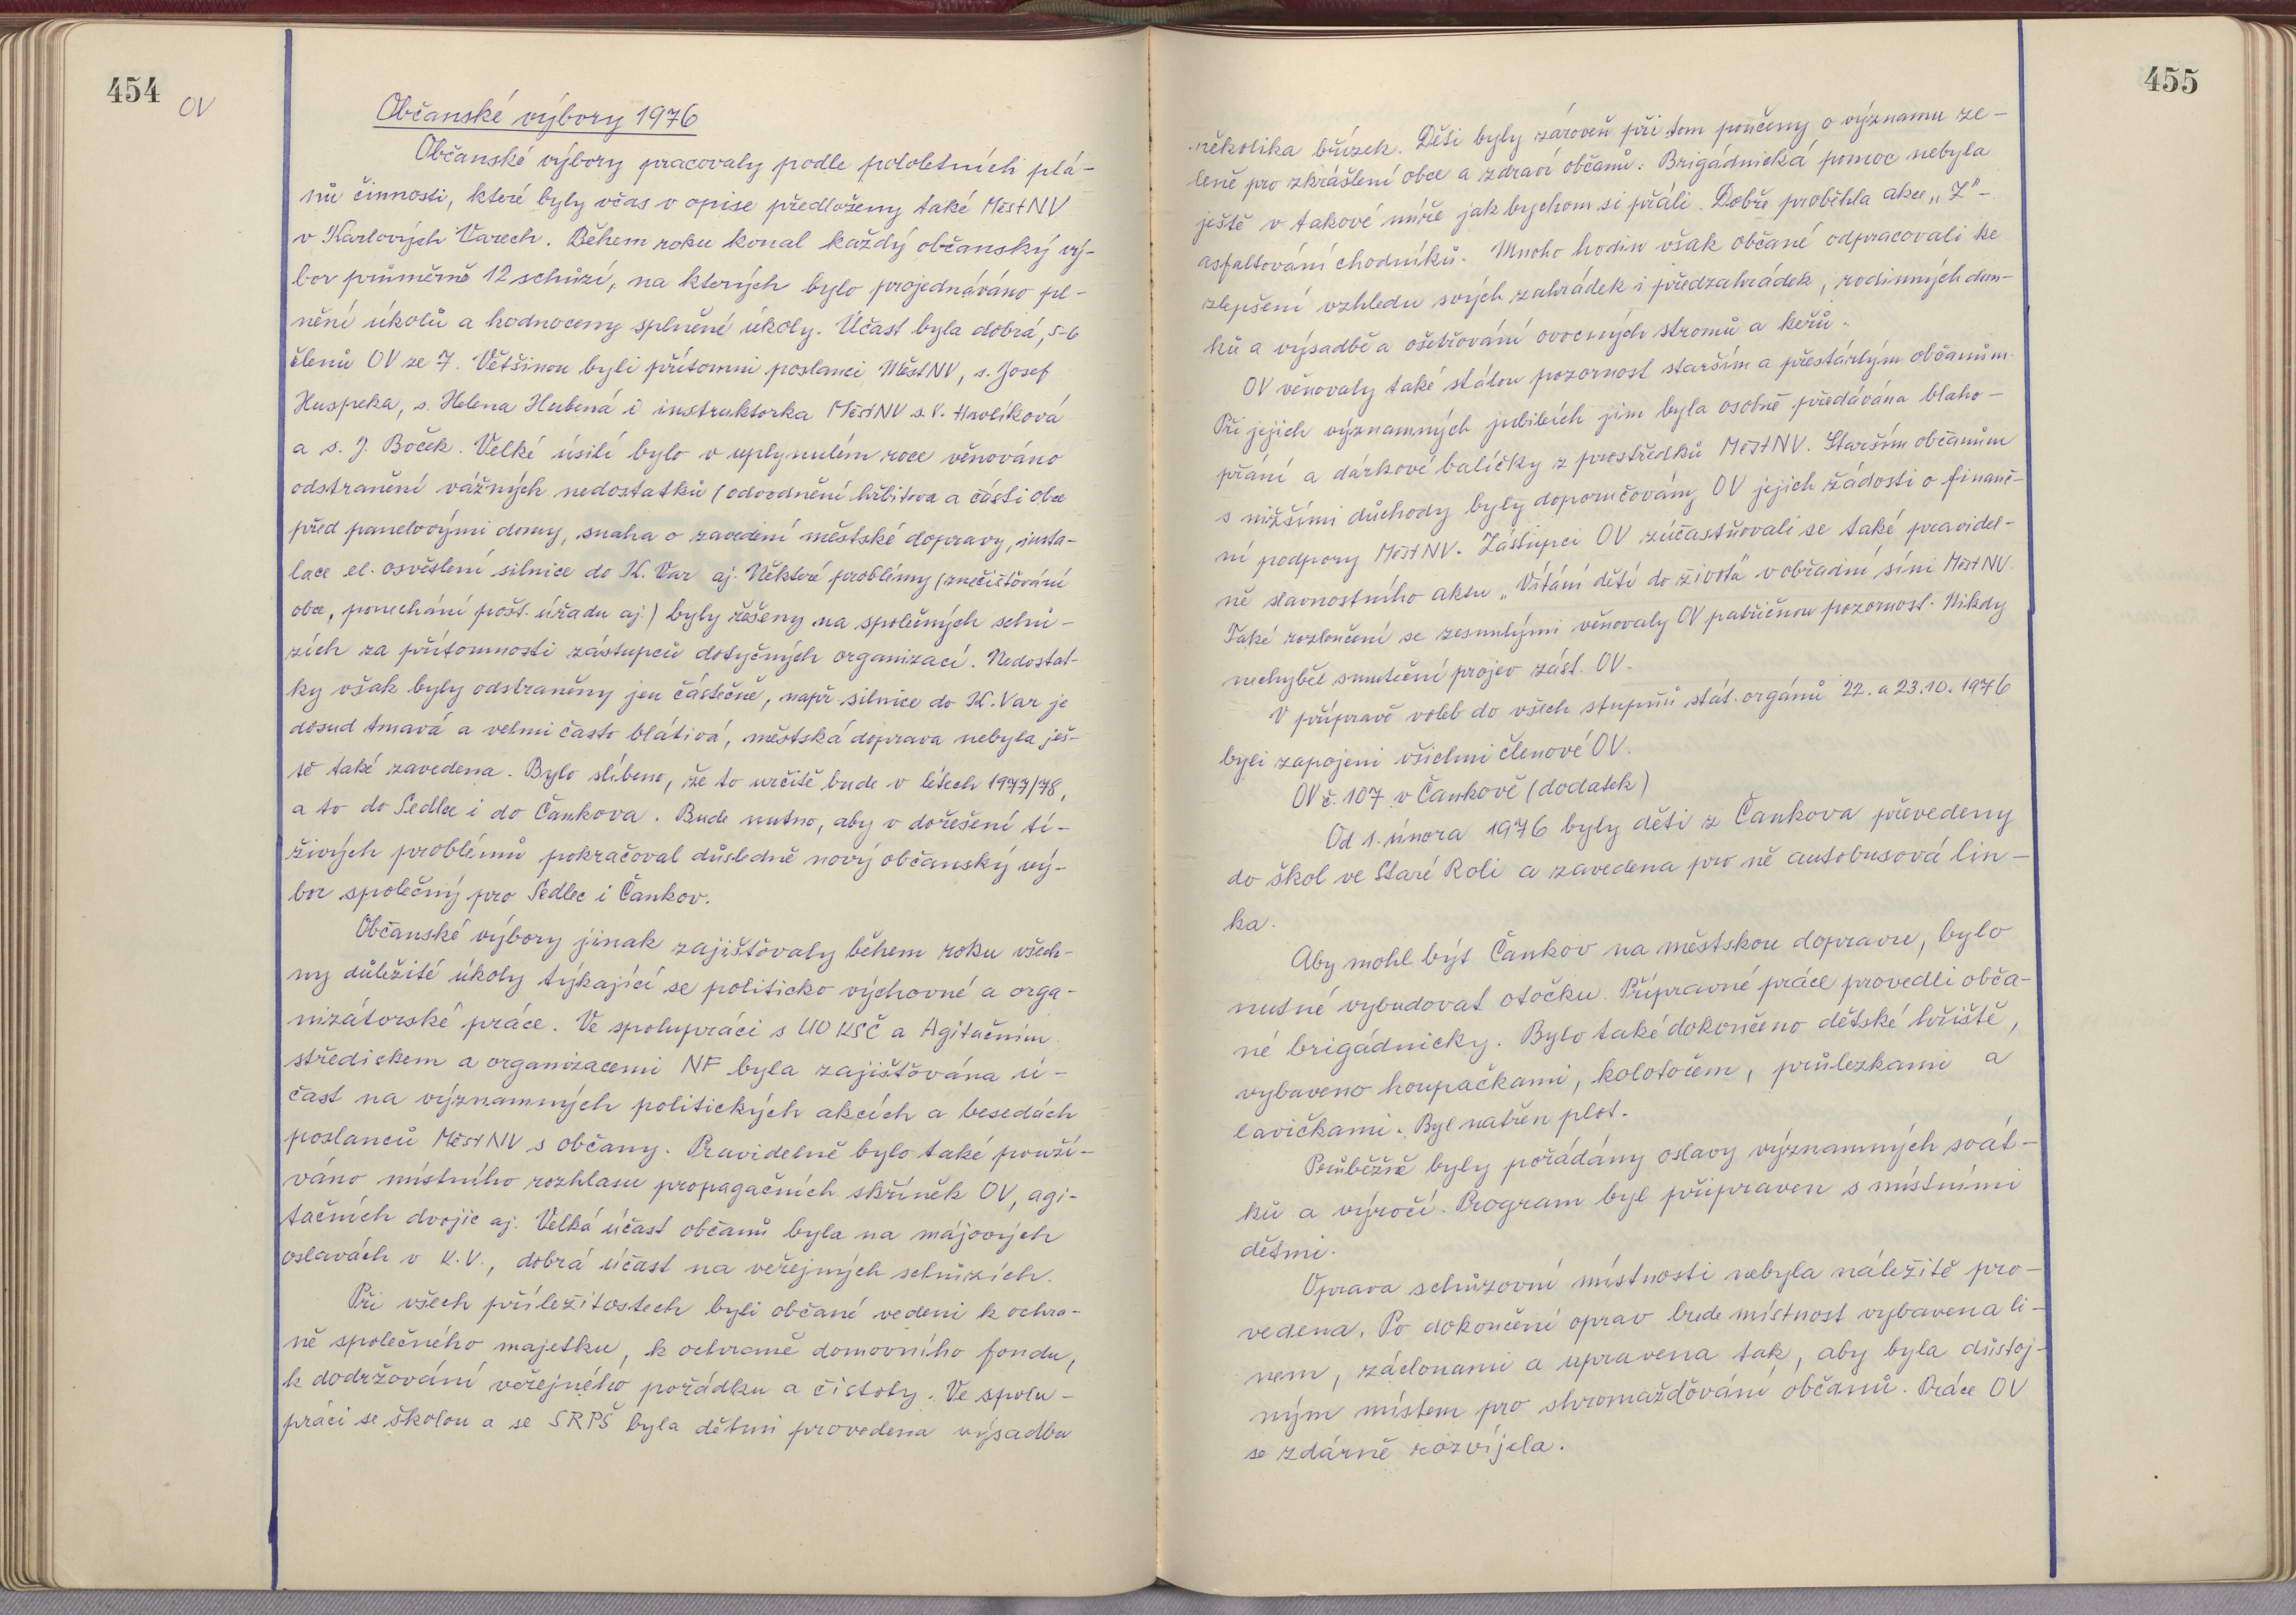 454
OV
Občanské výbory 1976
Občanské výbory pracovaly podle pololetních plá-
nů činnosti, které byly včas v opise předloženy také MěstNV
v Karlových Varech. Během roku konal každý občanský vý-
bor průměrně 12 schůzí, na kterých bylo projednáváno pl-
nění úkolů a hodnoceny splněné úkoly. Účast byla dobrá, 5-6
členů OV ze 7. Většinou byli přítomni poslanci MěstNV, s. Josef
Huspeka, s. Helena Hubená i instruktorka MěstNV s. V. Havlíková
a s. J. Boček. Velké úsilí bylo v uplynulém roce věnováno
odstranění vážných nedostatků (odvodnění hřbitova a části obce
před panelovými domy, snaha o zavedení městské dopravy, insta-
lace el. osvětlení silnice do K. Var aj. Některé problémy (znečišťování
obce, ponechání pošt. úřadu aj.) byly řešeny na společných schů-
zích za přítomnosti zástupců dotyčných organizací. Nedostat-
ky však byly odstraněny jen částečně, např. silnice do K. Var je
dosud tmavá a velmi často blátivá, městská doprava nebyla ješ-
tě také zavedena. Bylo slíbeno, že to určitě bude v létech 1977/78,
a to do Sedlce i do Čankova. Bude nutno, aby v dořešení tí-
živých problémů pokračoval důsledně nový občanský vý-
bor společný pro Sedlec i Čankov.
Občanské výbory jinak zajišťovaly během roku všech-
ny důležité úkoly týkající se politicko výchovné a orga-
nizátorské práce. Ve spolupráci s UO KSČ a Agitačním
střediskem a organizacemi NF byla zajišťována ú-
čast na významných politických akcích a besedách
poslanců MěstNV s občany. Pravidelně bylo také použí-
váno místního rozhlasu propagačních skříněk OV, agi-
tačních dvojic aj. Velká účast občanů byla na májových
oslavách v K.V., dobrá účast na veřejných schůzích.
Při všech příležitostech byli občané vedeni k ochra-
ně společného majetku, k ochraně domovního fondu,
k dodržování veřejného pořádku a čistoty. Ve spolu-
práci se školou a se SRPŠ byla dětmi provedena výsadba
455
několika břízek. Děti byly zároveň při tom poučeny o významu ze-
leně pro zkrášlení obce a zdraví občanů. Brigádnická pomoc nebyla
ještě v takové míře jak bychom si přáli. Dobře proběhla akce „Z"-
asfaltování chodníků. Mnoho hodin však občané odpracovali ke
zlepšení vzhledu svých zahrádek i předzahrádek, rodinných dom-
ků a výsadbě a ošetřování ovocných stromů a keřů.
OV věnovaly také stálou pozornost starším a přestárlým občanům.
Při jejich významných jubileích jim byla osobně předávána blaho-
přání a dárkové balíčky z prostředků MěstNV. Starším občanům
s nižšími důchody byly doporučovány OV jejich žádosti o finanč-
ní podpory MěstNV. Zástupci OV zúčastňovali se také pravidel-
ně slavnostního aktu „Vítání dětí do života" v obřadní síni MěstNV.
Také rozloučení se zesnulými věnovaly OV patřičnou pozornost. Nikdy
nechyběl smuteční projev zást. OV.
V přípravě voleb do všech stupňů stát. orgánů 22. a 23.10.1976
byli zapojeni všichni členové OV.
OV č. 107 v Čankově (dodatek)
Od 1. února 1976 byly děti z Čankova převedeny
do škol ve Staré Roli a zavedena pro ně autobusová lin-
ka.
Aby mohl být Čankov na městskou dopravu, bylo
nutné vybudovat otočku. Přípravné práce provedli obča-
né brigádnicky. Bylo také dokončeno dětské hřiště,
vybaveno houpačkami, kolotočem, průlezkami a
lavičkami. Byl natřen plot.
Průběžně byly pořádány oslavy významných svát-
ků a výročí. Program byl připraven s místními
dětmi.
Oprava schůzovní místnosti nebyla náležitě pro-
vedena. Po dokončení oprav bude místnost vybavena li-
nem, záclonami a upravena tak, aby byla důstoj-
ným místem pro shromažďování občanů. Práce OV
se zdárně rozvíjela.